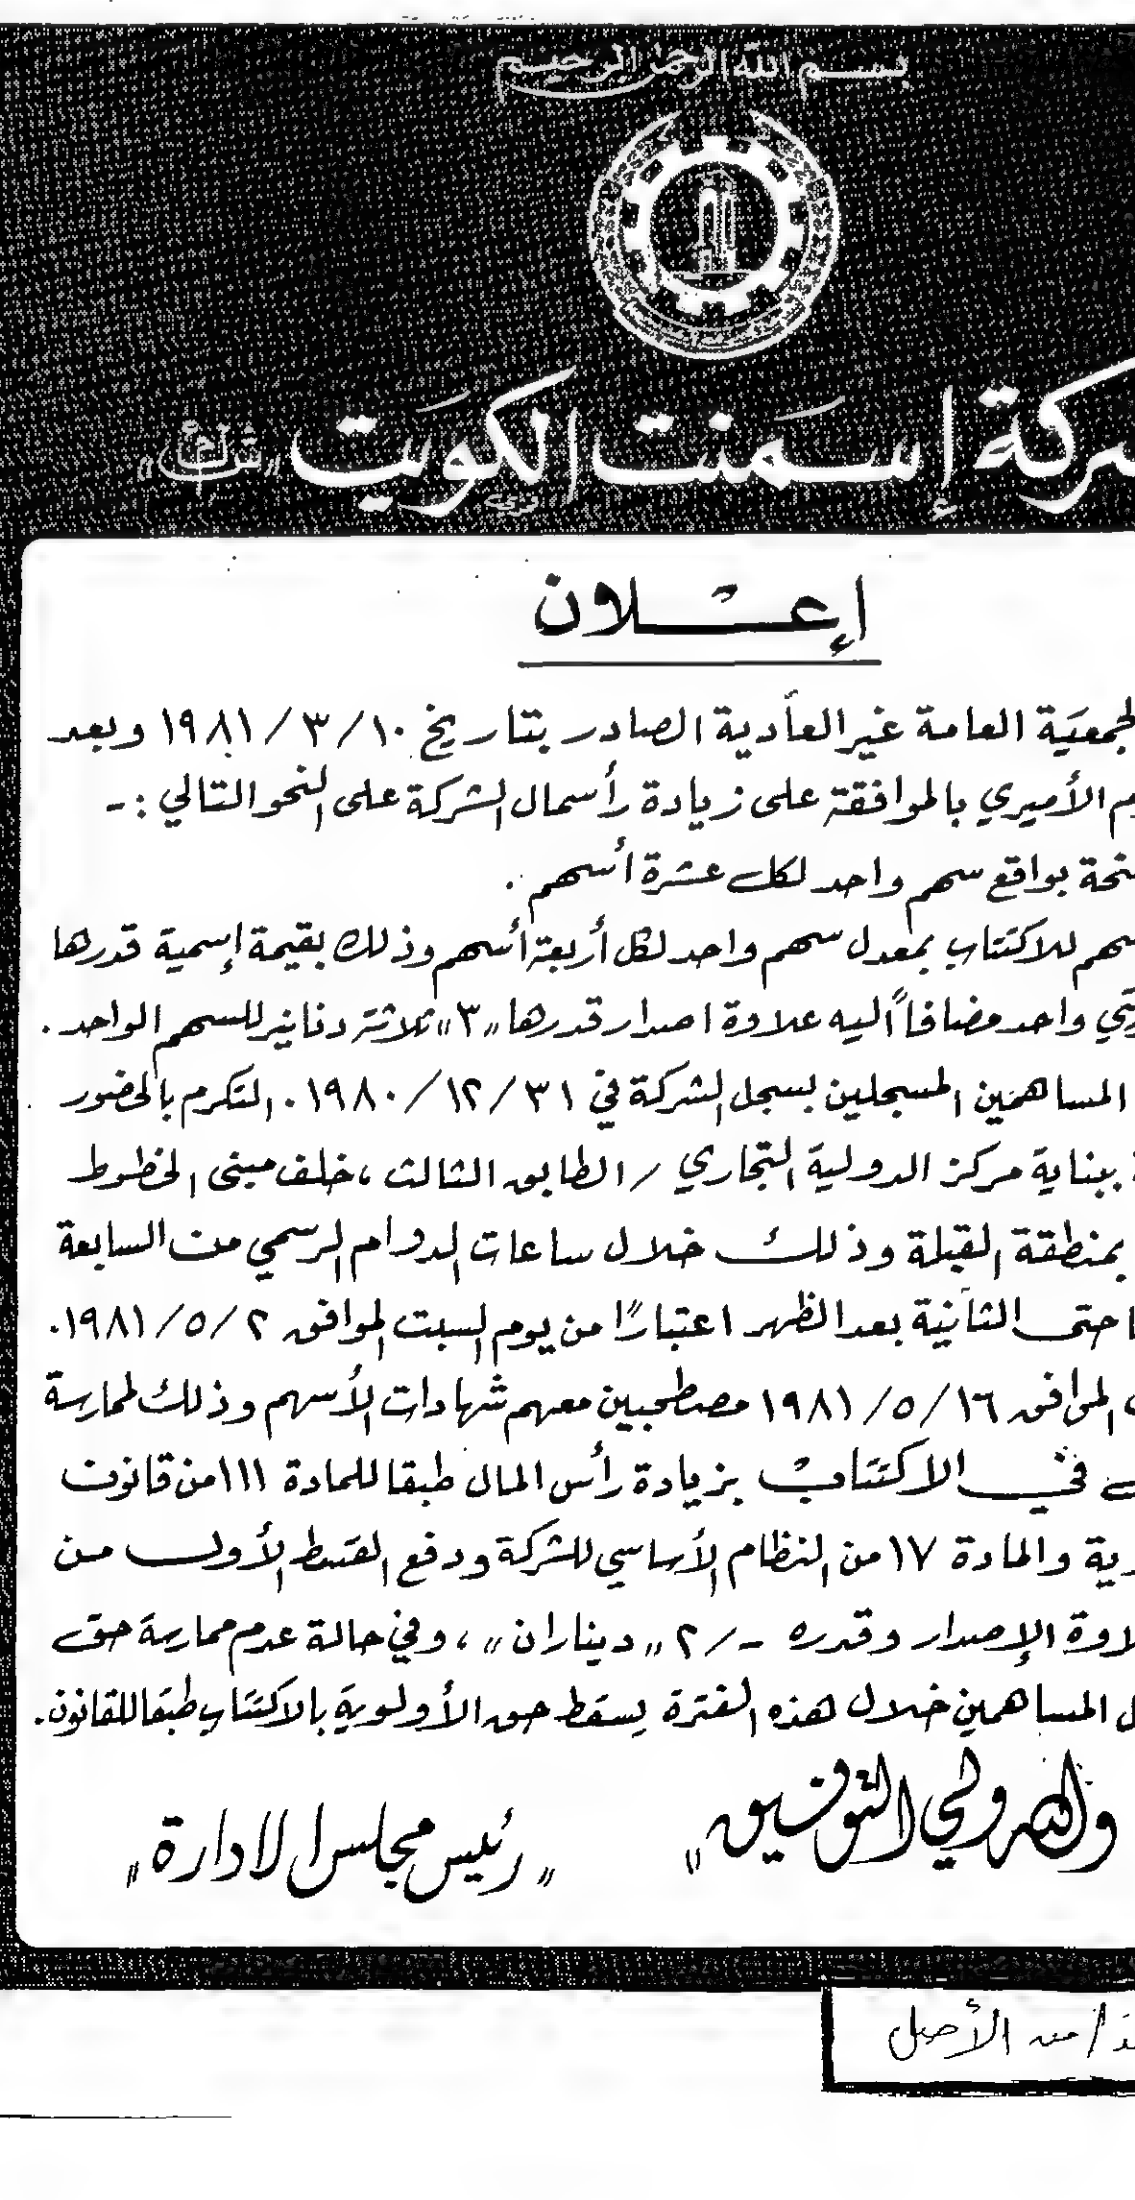 بسم الله الرحمن الرحيم
شركة إسمنت الكويت «ش.م.ك»
إعلان
الجمعية العامة غير العادية الصادر بتاريخ ١٠/٣/١٩٨١ وبعد
الأميري بالموافقة على زيادة رأسمال الشركة على النحو التالي :-
منحة بواقع سهم واحد لكل عشرة أسهم .
سهم للاكتتاب بمعدل سهم واحد لكل أربعة أسهم وذلك بقيمة إسمية قدرها
واحد مضافاً اليه علاوة اصدار قدرها «٣» ثلاثة دنانير للسهم الواحد .
المساهمين المسجلين بسجل الشركة في ٣١/١٢/١٩٨٠ . التكرم بالحضور
ببناية مركز الدولية التجاري / الطابق الثالث ، خلف مبنى الخطوط
بمنطقة القبلة وذلك خلال ساعات الدوام الرسمي من السابعة
حتى الثانية بعد الظهر اعتبارًا من يوم السبت الموافق ٢/٥/١٩٨١ .
الموافق ١٦/٥/١٩٨١ مصطحبين معهم شهادات الأسهم وذلك لممارسة
في الاكتتاب بزيادة رأس المال طبقا للمادة ١١١ من قانون
والمادة ١٧ من النظام الأساسي للشركة ودفع القسط الأول من
علاوة الإصدار وقدره -/٢ «ديناران» ، وفي حالة عدم ممارسة حق
المساهمين خلال هذه الفترة يسقط حق الأولوية بالاكتتاب طبقا للقانون .
والله ولي التوفيق»
«رئيس مجلس الادارة»
من الأصل